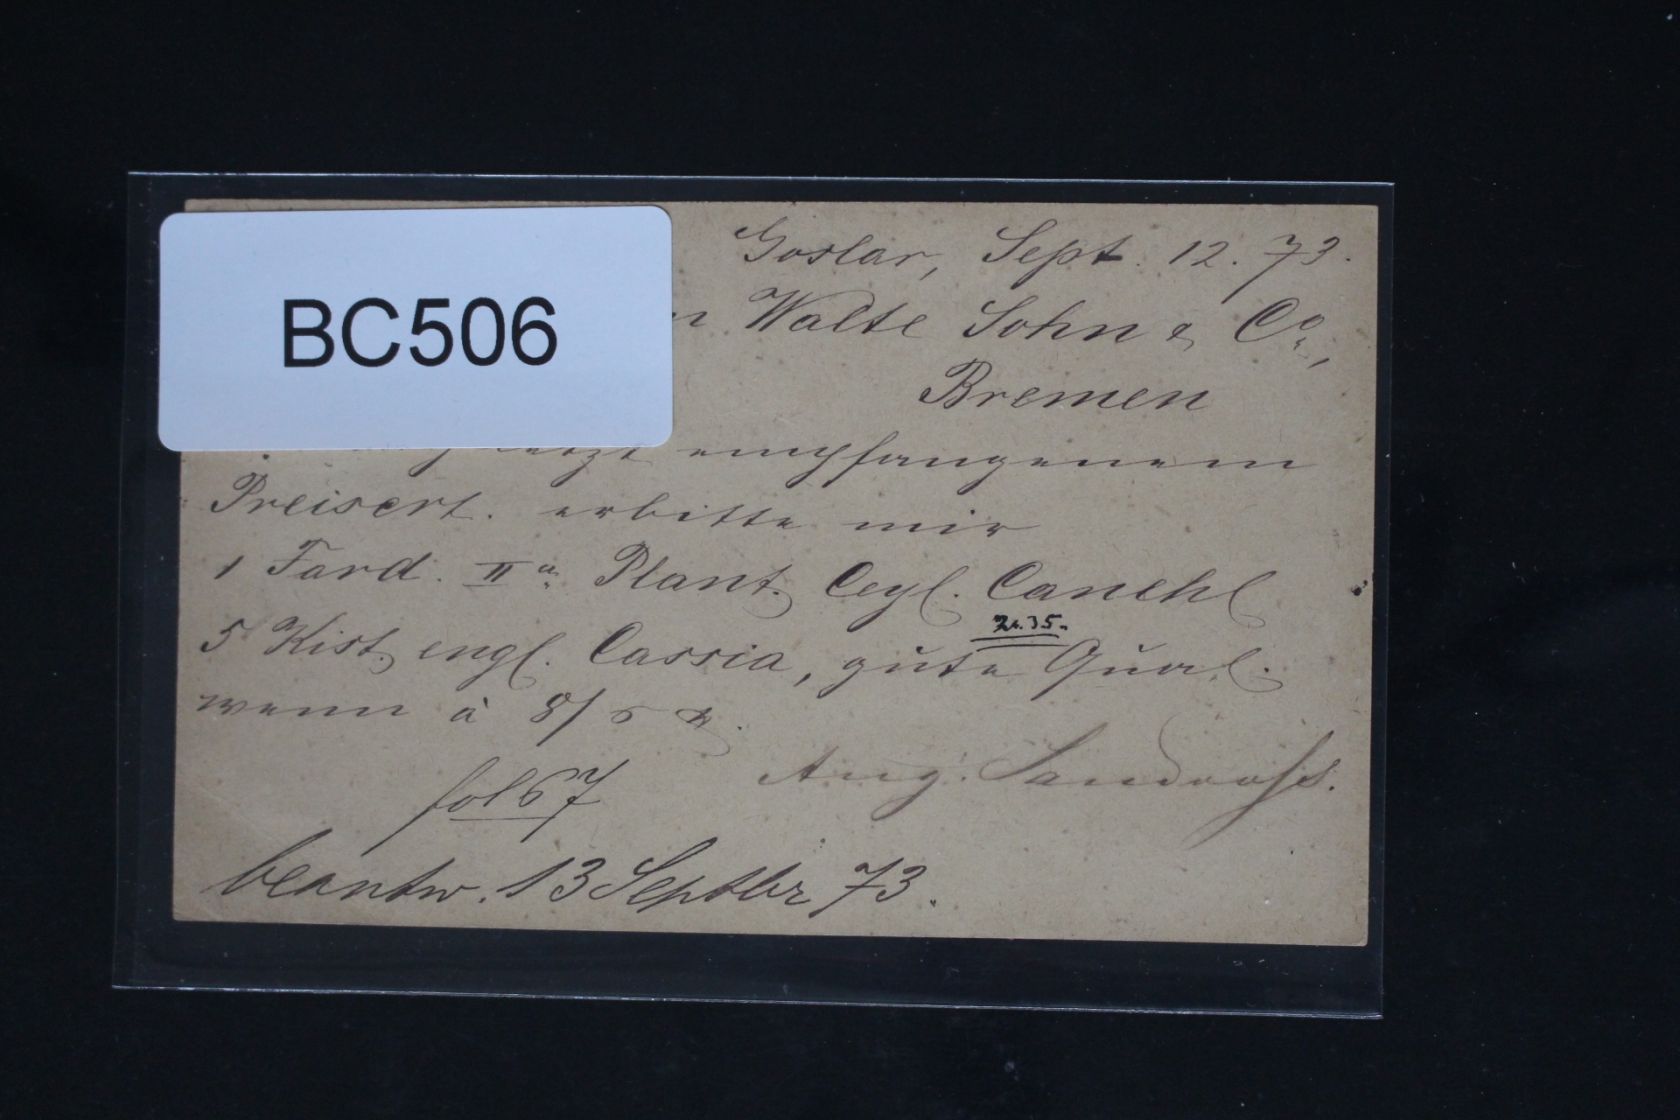 BC506
Goslar, Sept. 12. 73.
Walte Sohn & Co.,
Bremen
empfangenem
Preiscrt. erbitte mir
1 Fard. IIa Plant. Ceyl. Canehl
5 Kist. engl. Cassia, gute Qual.
wenn à 8/
Aug.
fol 67
beantw. 13 Septbr 73.